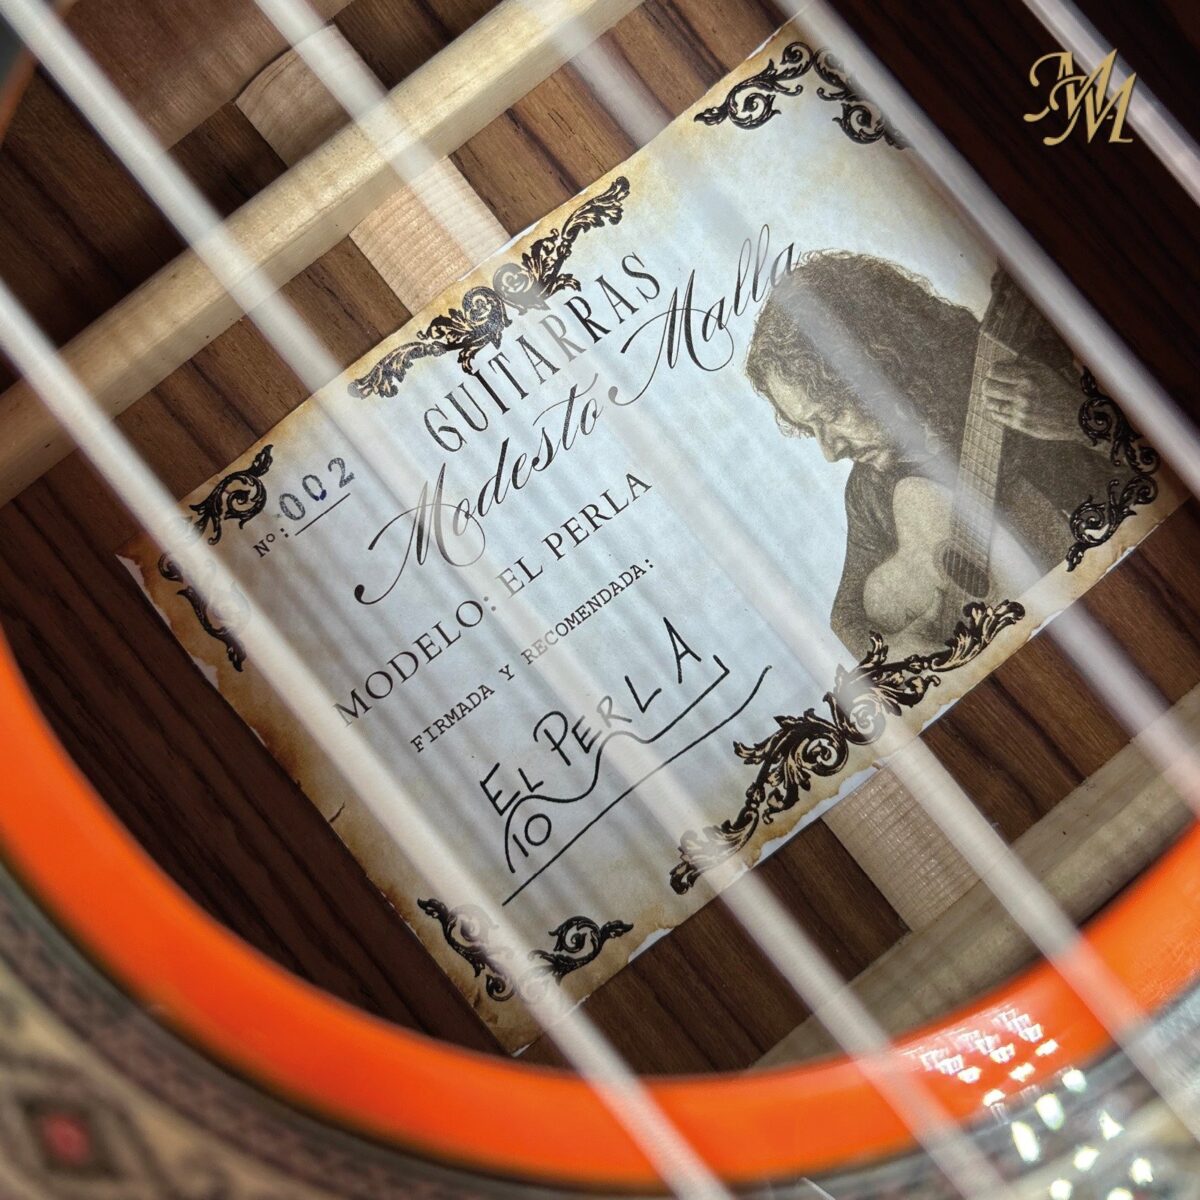 MM
GUITARRAS
Modesto Malla
Nº: 002
MODELO: EL PERLA
FIRMADA Y RECOMENDADA:
EL PERLA
10